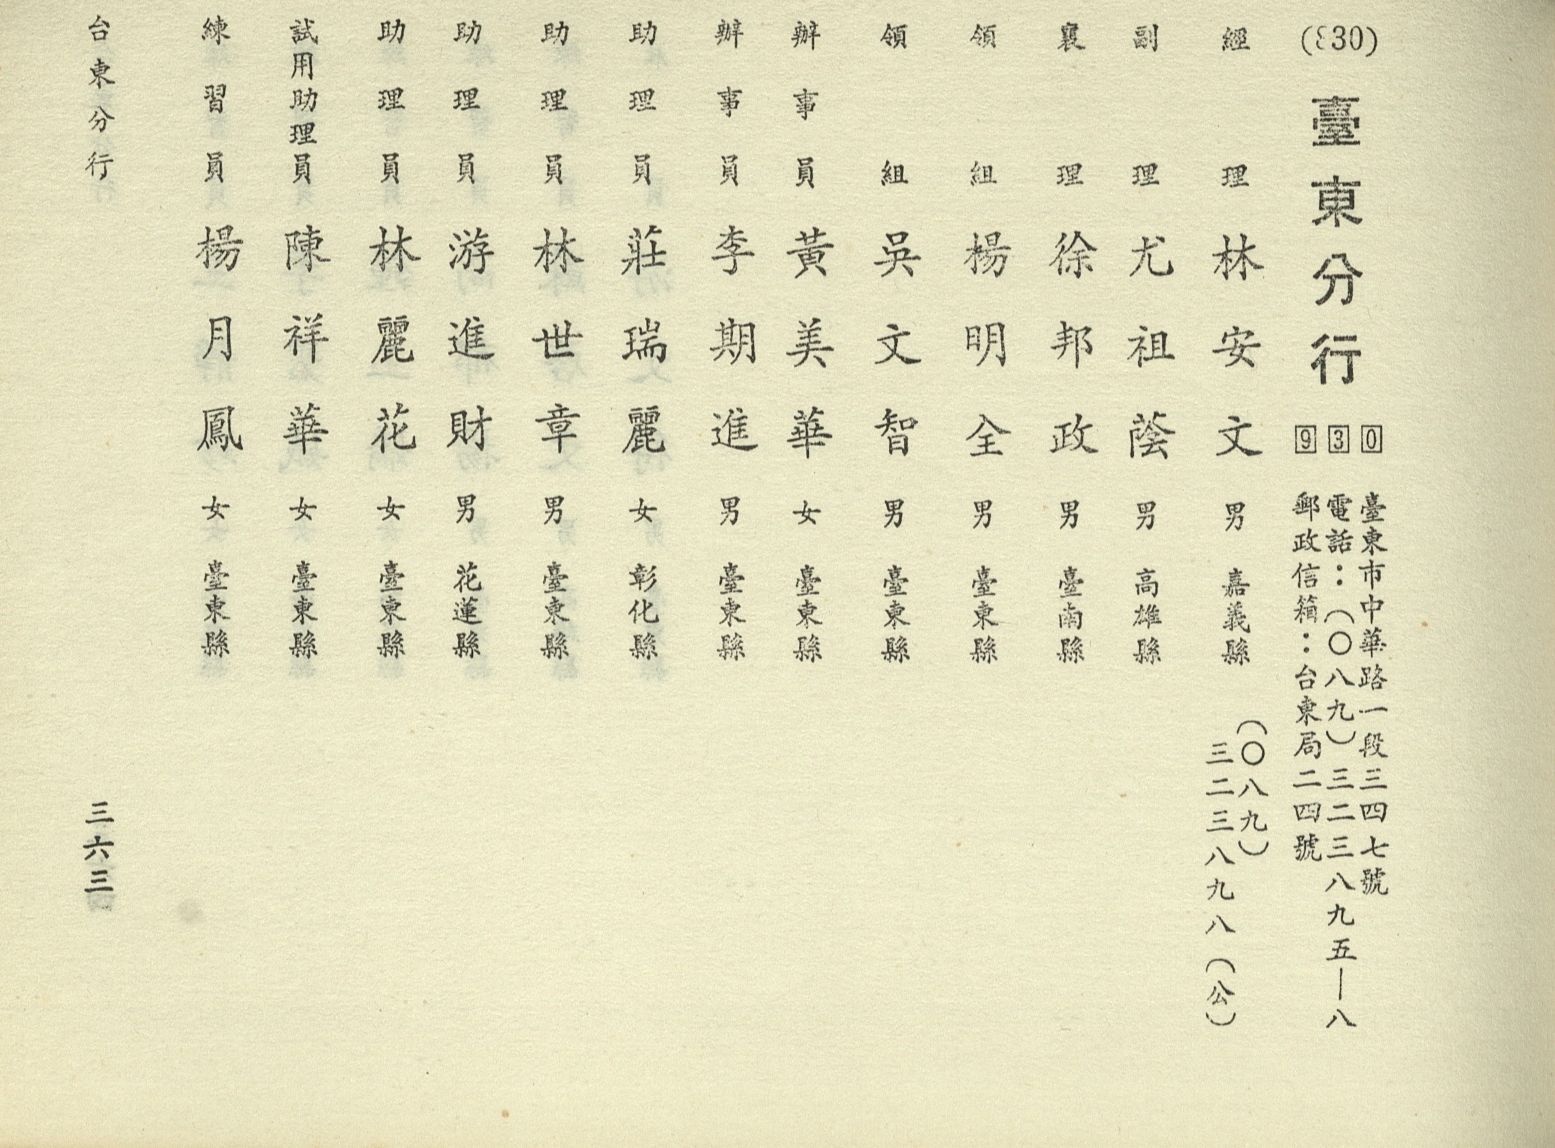 (830)
臺東分行
930
臺東市中華路一段三四七號
電話：(〇八九)三二三八九五—八
郵政信箱：台東局二四號
經理 林安文 男 嘉義縣 (〇八九)
三二三八九八(公)
副理 尤祖蔭 男 高雄縣
襄理 徐邦政 男 臺南縣
領組 楊明全 男 臺東縣
領組 吳文智 男 臺東縣
辦事員 黃美華 女 臺東縣
辦事員 李期進 男 臺東縣
助理員 莊瑞麗 女 彰化縣
助理員 林世章 男 臺東縣
助理員 游進財 男 花蓮縣
助理員 林麗花 女 臺東縣
試用助理員 陳祥華 女 臺東縣
練習員 楊月鳳 女 臺東縣
台東分行
三六三